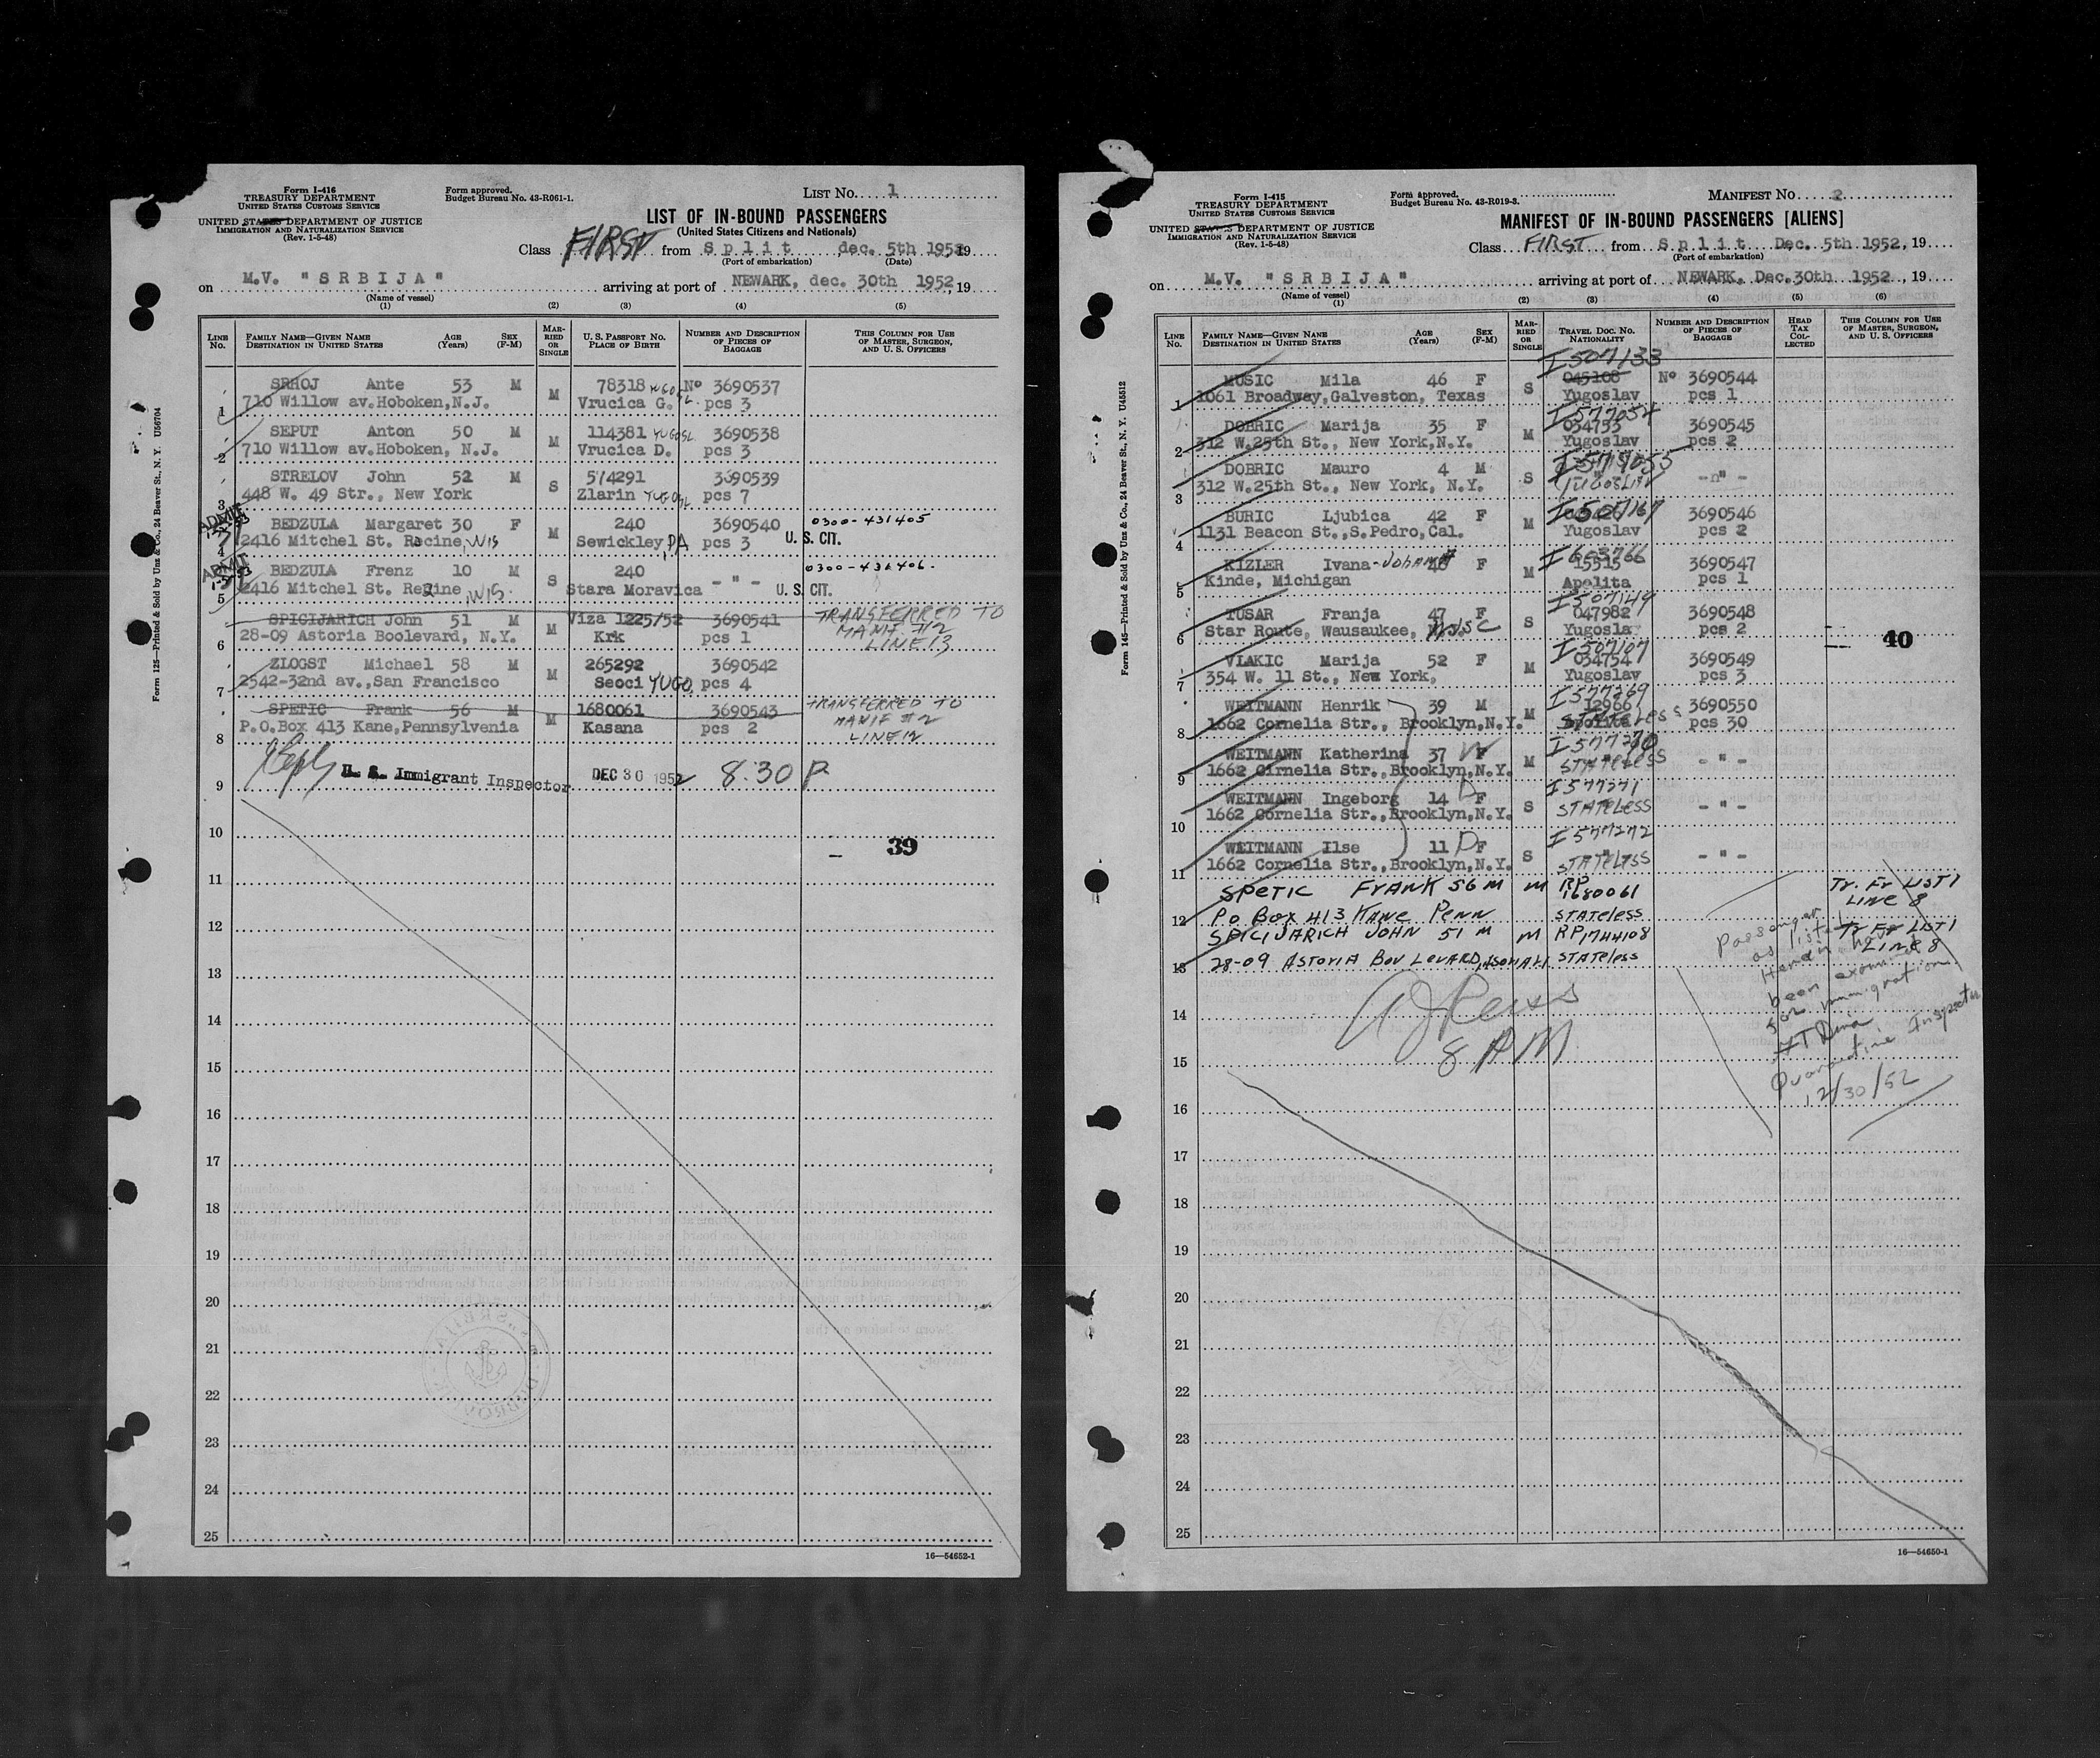 Form I-416
TREASURY DEPARTMENT
UNITED STATES CUSTOMS SERVICE
UNITED STATES DEPARTMENT OF JUSTICE
IMMIGRATION AND NATURALIZATION SERVICE
(Rev. 1-5-48)
Form approved.
Budget Bureau No. 43-R061-1.
LIST No. 1
LIST OF IN-BOUND PASSENGERS
(United States Citizens and Nationals)
Class FIRST from Split dec. 5th 1952 19
(Port of embarkation) (Date)
on M.V. "SRBIJA" arriving at port of NEWARK, dec. 30th 1952, 19
(Name of vessel)
(1) (2) (3) (4) (5)
LINE No. FAMILY NAME—GIVEN NAME DESTINATION IN UNITED STATES AGE (Years) SEX (F-M) MARRIED OR SINGLE U. S. PASSPORT NO. PLACE OF BIRTH NUMBER AND DESCRIPTION OF PIECES OF BAGGAGE THIS COLUMN FOR USE OF MASTER, SURGEON, AND U. S. OFFICERS
SRHOJ Ante 53 M M 78318 YUGOSL. Nº 3690537
1 710 Willow av.Hoboken,N.J. Vrucica G. pcs 3
SEPUT Anton 50 M M 114381 YUGOSL 3690538
2 710 Willow av.Hoboken, N.J. Vrucica D. pcs 3
STRELOV John 52 M S 574291 3690539
3 448 W. 49 Str., New York Zlarin YUGOSL pcs 7
ADMIT
BEDZULA Margaret 30 F M 240 3690540 0300-431405
4 2416 Mitchel St. Racine, WIS Sewickley, PA pcs 3 U. S. CIT.
ADMIT
BEDZULA Frenz 10 M S 240 - " - 0300-431406.
5 2416 Mitchel St. Racine, WIS. Stara Moravica U. S. CIT.
SPICIJARICH John 51 M M Viza 1225/52 3690541 TRANSFERRED TO
6 28-09 Astoria Boolevard, N.Y. Krk pcs 1 MANIF #2 LINE 13
ZLOGST Michael 58 M M 265292 3690542
7 2542-32nd av.,San Francisco Seoci YUGO. pcs 4
SPETIC Frank 56 M M 1680061 3690543 TRANSFERRED TO
8 P.O.Box 413 Kane,Pennsylvenia Kasana pcs 2 MANIF #2 LINE 12
9 U. S. Immigrant Inspector DEC 30 1952 8:30 P
10
39
11
12
13
14
15
16
17
18
19
20
21
22
23
24
25
16—54652-1
Form 125—Printed & Sold by Unz & Co., 24 Beaver St., N. Y. U56704
Form I-415
TREASURY DEPARTMENT
UNITED STATES CUSTOMS SERVICE
UNITED STATES DEPARTMENT OF JUSTICE
IMMIGRATION AND NATURALIZATION SERVICE
(Rev. 1-5-48)
Form approved.
Budget Bureau No. 43-R019-3.
MANIFEST No. 2
MANIFEST OF IN-BOUND PASSENGERS [ALIENS]
Class FIRST from Split Dec. 5th 1952, 19
(Port of embarkation)
on M.V. "SRBIJA" arriving at port of NEWARK, Dec.30th 1952, 19
(Name of vessel)
(1) (2) (3) (4) (5) (6)
LINE No. FAMILY NAME—GIVEN NAME DESTINATION IN UNITED STATES AGE (Years) SEX (F-M) MARRIED OR SINGLE TRAVEL DOC. NO. NATIONALITY NUMBER AND DESCRIPTION OF PIECES OF BAGGAGE HEAD TAX COLLECTED THIS COLUMN FOR USE OF MASTER, SURGEON, AND U. S. OFFICERS
I507133
MUSIC Mila 46 F S 045108 Nº 3690544
1 1061 Broadway,Galveston, Texas Yugoslav pcs 1
I577054
DOBRIC Marija 35 F M 034753 3690545
2 312 W.25th St., New York,N.Y. Yugoslav pcs 2
I577055
DOBRIC Mauro 4 M S - " -
3 312 W.25th St., New York, N.Y. YUGOSLAV
I507167
BURIC Ljubica 42 F M 3690546
4 1131 Beacon St.,S.Pedro,Cal. Yugoslav pcs 2
I603766
KIZLER Ivana-Johana 46 F M 15515 3690547
5 Kinde, Michigan Apolita pcs 1
I507149
TUSAR Franja 47 F S 047982 3690548
6 Star Route, Wausaukee, WISC Yugosla pcs 2
40
I507107
VLAKIC Marija 52 F M 034754 3690549
7 354 W. 11 St., New York, Yugoslav pcs 3
I577269
WEITMANN Henrik 39 M M 12966 3690550
8 1662 Cornelia Str., Brooklyn,N.Y. STATELESS pcs 30
I577270
WEITMANN Katherina 37 F M - " -
9 1662 Cirnelia Str.,Brooklyn,N.Y. STATELESS
I577271
WEITMANN Ingeborg 14 F S - " -
10 1662 Cornelia Str.,Brooklyn,N.Y. STATELESS
I577272
WEITMANN Ilse 11 F S - " -
11 1662 Cornelia Str.,Brooklyn,N.Y. STATELESS
SPETIC FRANK 56 M M RP 1680061 Tr. Fr LIST 1
12 P.O BOX 413 KANE PENN STATELESS LINE 8
SPICIJARICH JOHN 51 M M RP1744108 Tr Fr LIST 1
13 28-09 ASTORIA BOULEVARD, STATELESS LINE 8
Passenger
as listed
Herein have
been examined
for immigration
Quarantine Inspector
12/30/52
14
8 AM
15
16
17
18
19
20
21
22
23
24
25
16—54650-1
Form 145—Printed & Sold by Unz & Co., 24 Beaver St., N. Y. U45512